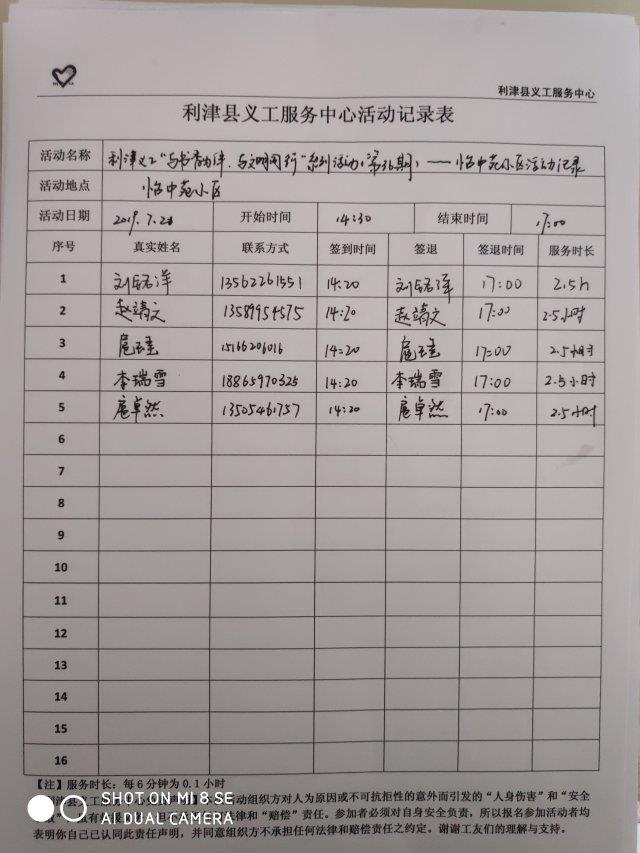 利津县义工服务中心
利津县义工服务中心活动记录表
活动名称 利津义工“与书香为伴、与文明同行”系列活动(第36期)——怡中苑小区活动记录
活动地点 怡中苑小区
活动日期 2019.7.21 开始时间 14:30 结束时间 17:00
序号 真实姓名 联系方式 签到时间 签退 签退时间 服务时长
1 刘 洋 13562261551 14:20 刘 洋 17:00 2.5h
2 赵靖文 13589954575 14:20 赵靖文 17:00 2.5小时
3 扈玉圭 15166206016 14:20 扈玉圭 17:00 2.5小时
4 李瑞雪 18865970325 14:20 李瑞雪 17:00 2.5小时
5 扈卓然 13505461757 14:20 扈卓然 17:00 2.5小时
6
7
8
9
10
11
12
13
14
15
16
【注】服务时长：每6分钟为0.1小时
利津县义工服 动组织方对人为原因或不可抗拒性的意外而引发的“人身伤害”和“安全
法律和“赔偿”责任。参加者必须对自身安全负责，所以报名参加活动者均
表明你自己已认同此责任声明，并同意组织方不承担任何法律和赔偿责任之约定。谢谢工友们的理解与支持。
SHOT ON MI 8 SE
AI DUAL CAMERA